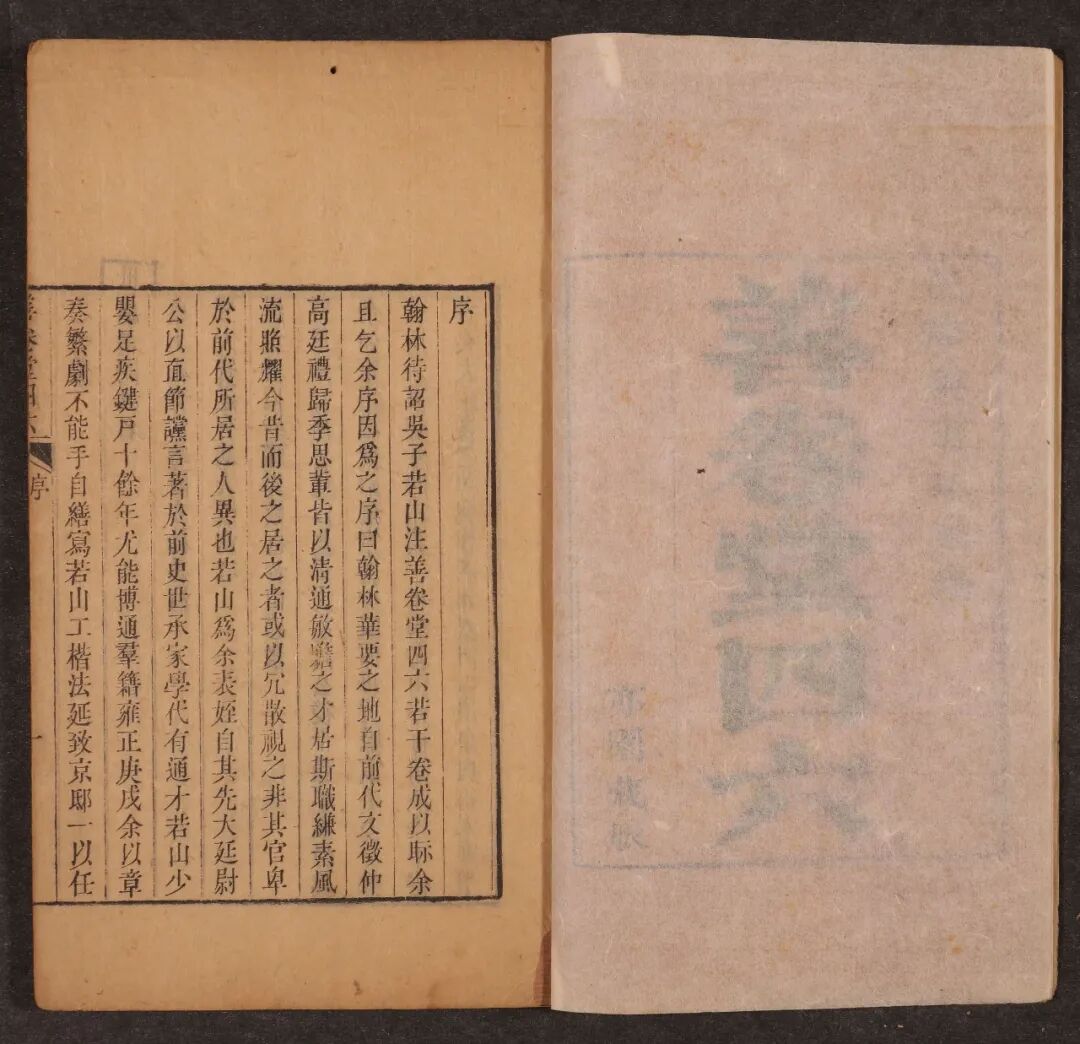 善卷堂四六
序
翰林待詔吳子若山注善卷堂四六若干卷成以眎余
且乞余序因爲之序曰翰林華要之地自前代文徵仲
高廷禮歸季思輩皆以清通敏贍之才居斯職縑素風
流照耀今昔而後之居之者或以冗散視之非其官卑
於前代所居之人異也若山爲余表姪自其先大廷尉
公以直節讜言著於前史世承家學代有通才若山少
嬰足疾鍵戸十餘年尤能博通羣籍雍正庚戌余以章
奏繁劇不能手自繕寫若山工楷法延致京邸一以任
善卷堂四六
序
一